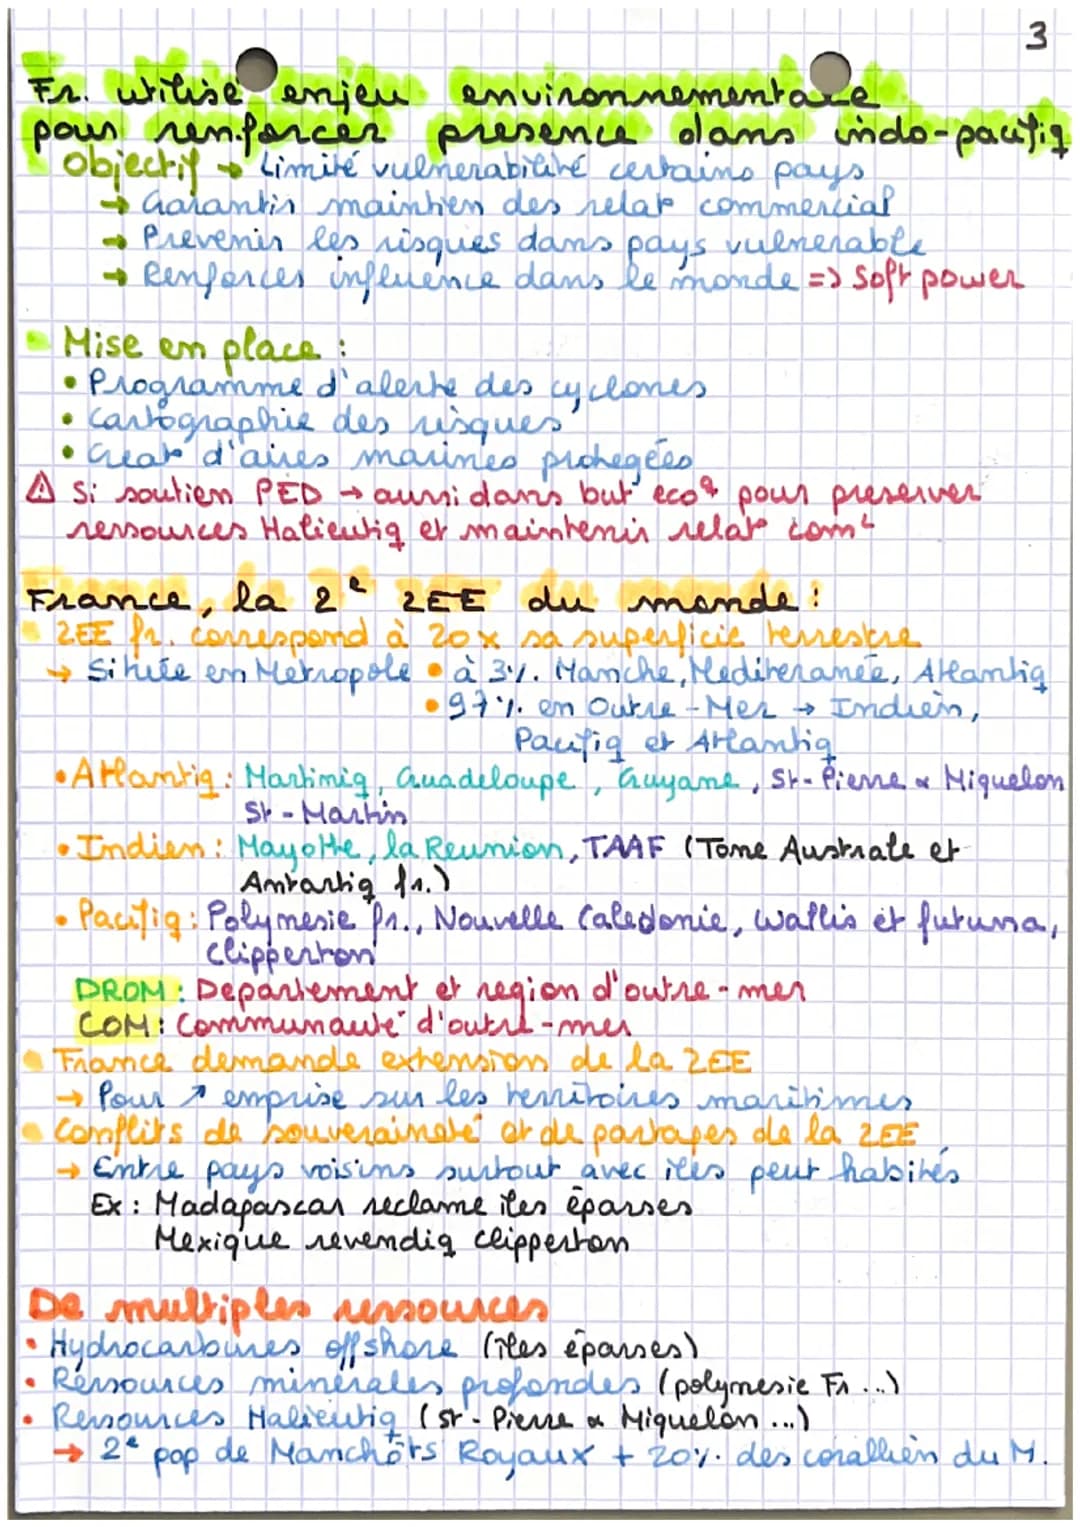 3
Fr. utilise enjeu environnementale
pour renforcer presence dans indo-pacifiq
Objectif → Limité vulnerabilité certains pays
→ Garantir maintien des relat° commercial
→ Prevenir les risques dans pays vulnerable
→ Renforcer influence dans le monde => Soft power
Mise en place :
• Programme d'alerte des cyclones
• Cartographie des risques
• Creat° d'aires marines protegées
⚠ Si soutien PED → aussi dans but eco⁹ pour preserver
ressources Halieutiq et maintenir relat° comᵗ
France, la 2ᵉ ZEE du monde :
ZEE fr. correspond à 20x sa superficie terrestre
→ Située en Metropole • à 3%. Manche, Mediteranée, Atlantiq
• 97%. en Outre-Mer → Indien,
Pacifiq et Atlantiq
• Atlantiq : Martiniq, Guadeloupe, Guyane, St-Pierre & Miquelon
St-Martin
• Indien : Mayotte, la Reunion, TAAF (Tome Australe et
Antartiq fr.)
• Pacifiq : Polynesie fr., Nouvelle Caledonie, Wallis et futuna,
Clipperton
DROM : Departement et region d'outre-mer
COM : Communauté d'outre-mer
France demande extension de la ZEE
→ Pour ↗ emprise sur les territoires maritimes
Conflits de souveraineté et de partages de la ZEE
→ Entre pays voisins surtout avec iles peut habités
Ex : Madagascar reclame iles éparses
Mexique revendiq clipperton
De multiples ressources
• Hydrocarbures offshore (îles éparses)
• Ressources minérales profondes (polynesie Fr...)
• Ressources Halieutiq (St-Pierre & Miquelon...)
→ 2ᵉ pop de Manchots Royaux + 20%. des corallien du M.